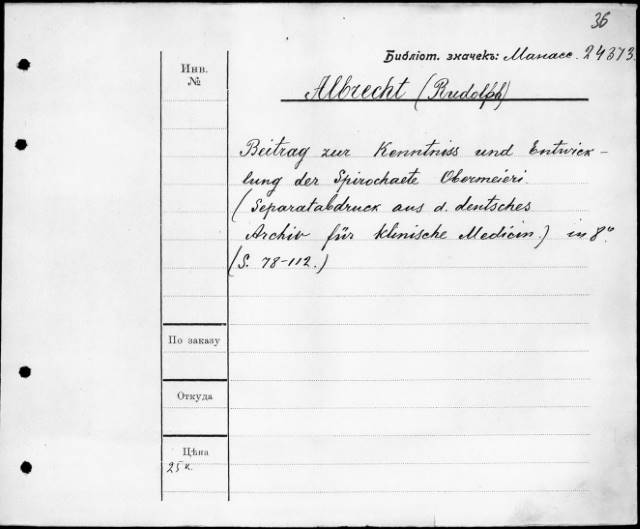 36
Библіот. значекъ: Манасс. 24373.
Инв.
№
Albrecht (Rudolph)
Beitrag zur Kenntniss und Entwick-
lung der Spirochaete Obermeieri.
(Separatabdruck aus d. deutsches
Archiv für klinische Medicin.) in 8°.
(S. 78-112.)
По заказу
Откуда
Цѣна
25 к.